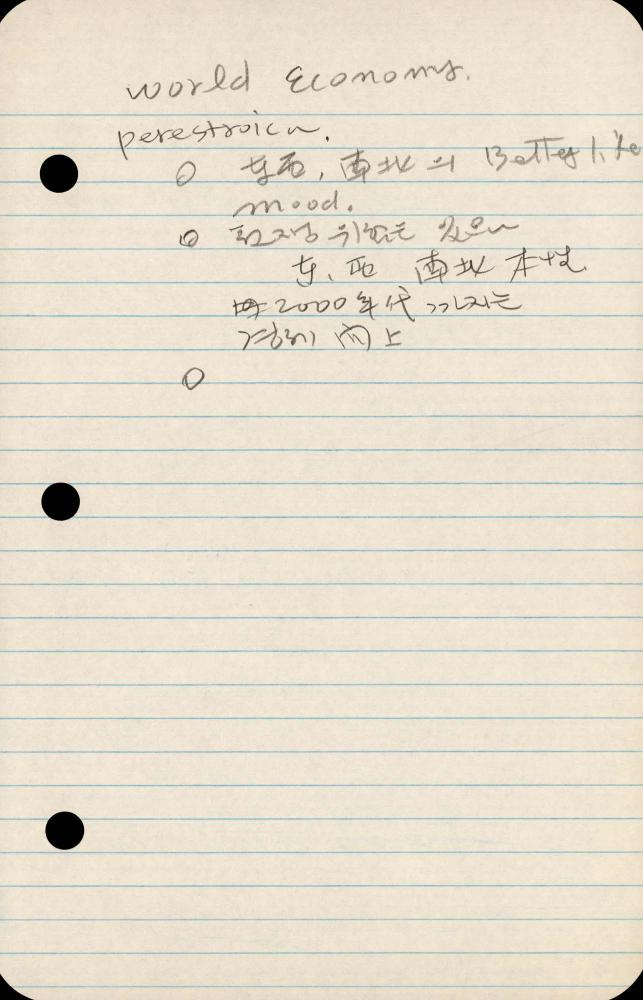 world Economy.
perestroica.
○ 东西, 南北의 Better like
mood.
○ 위험은 있으나
东、西 南北 本性
2000年代 까지는
경제 向上
○